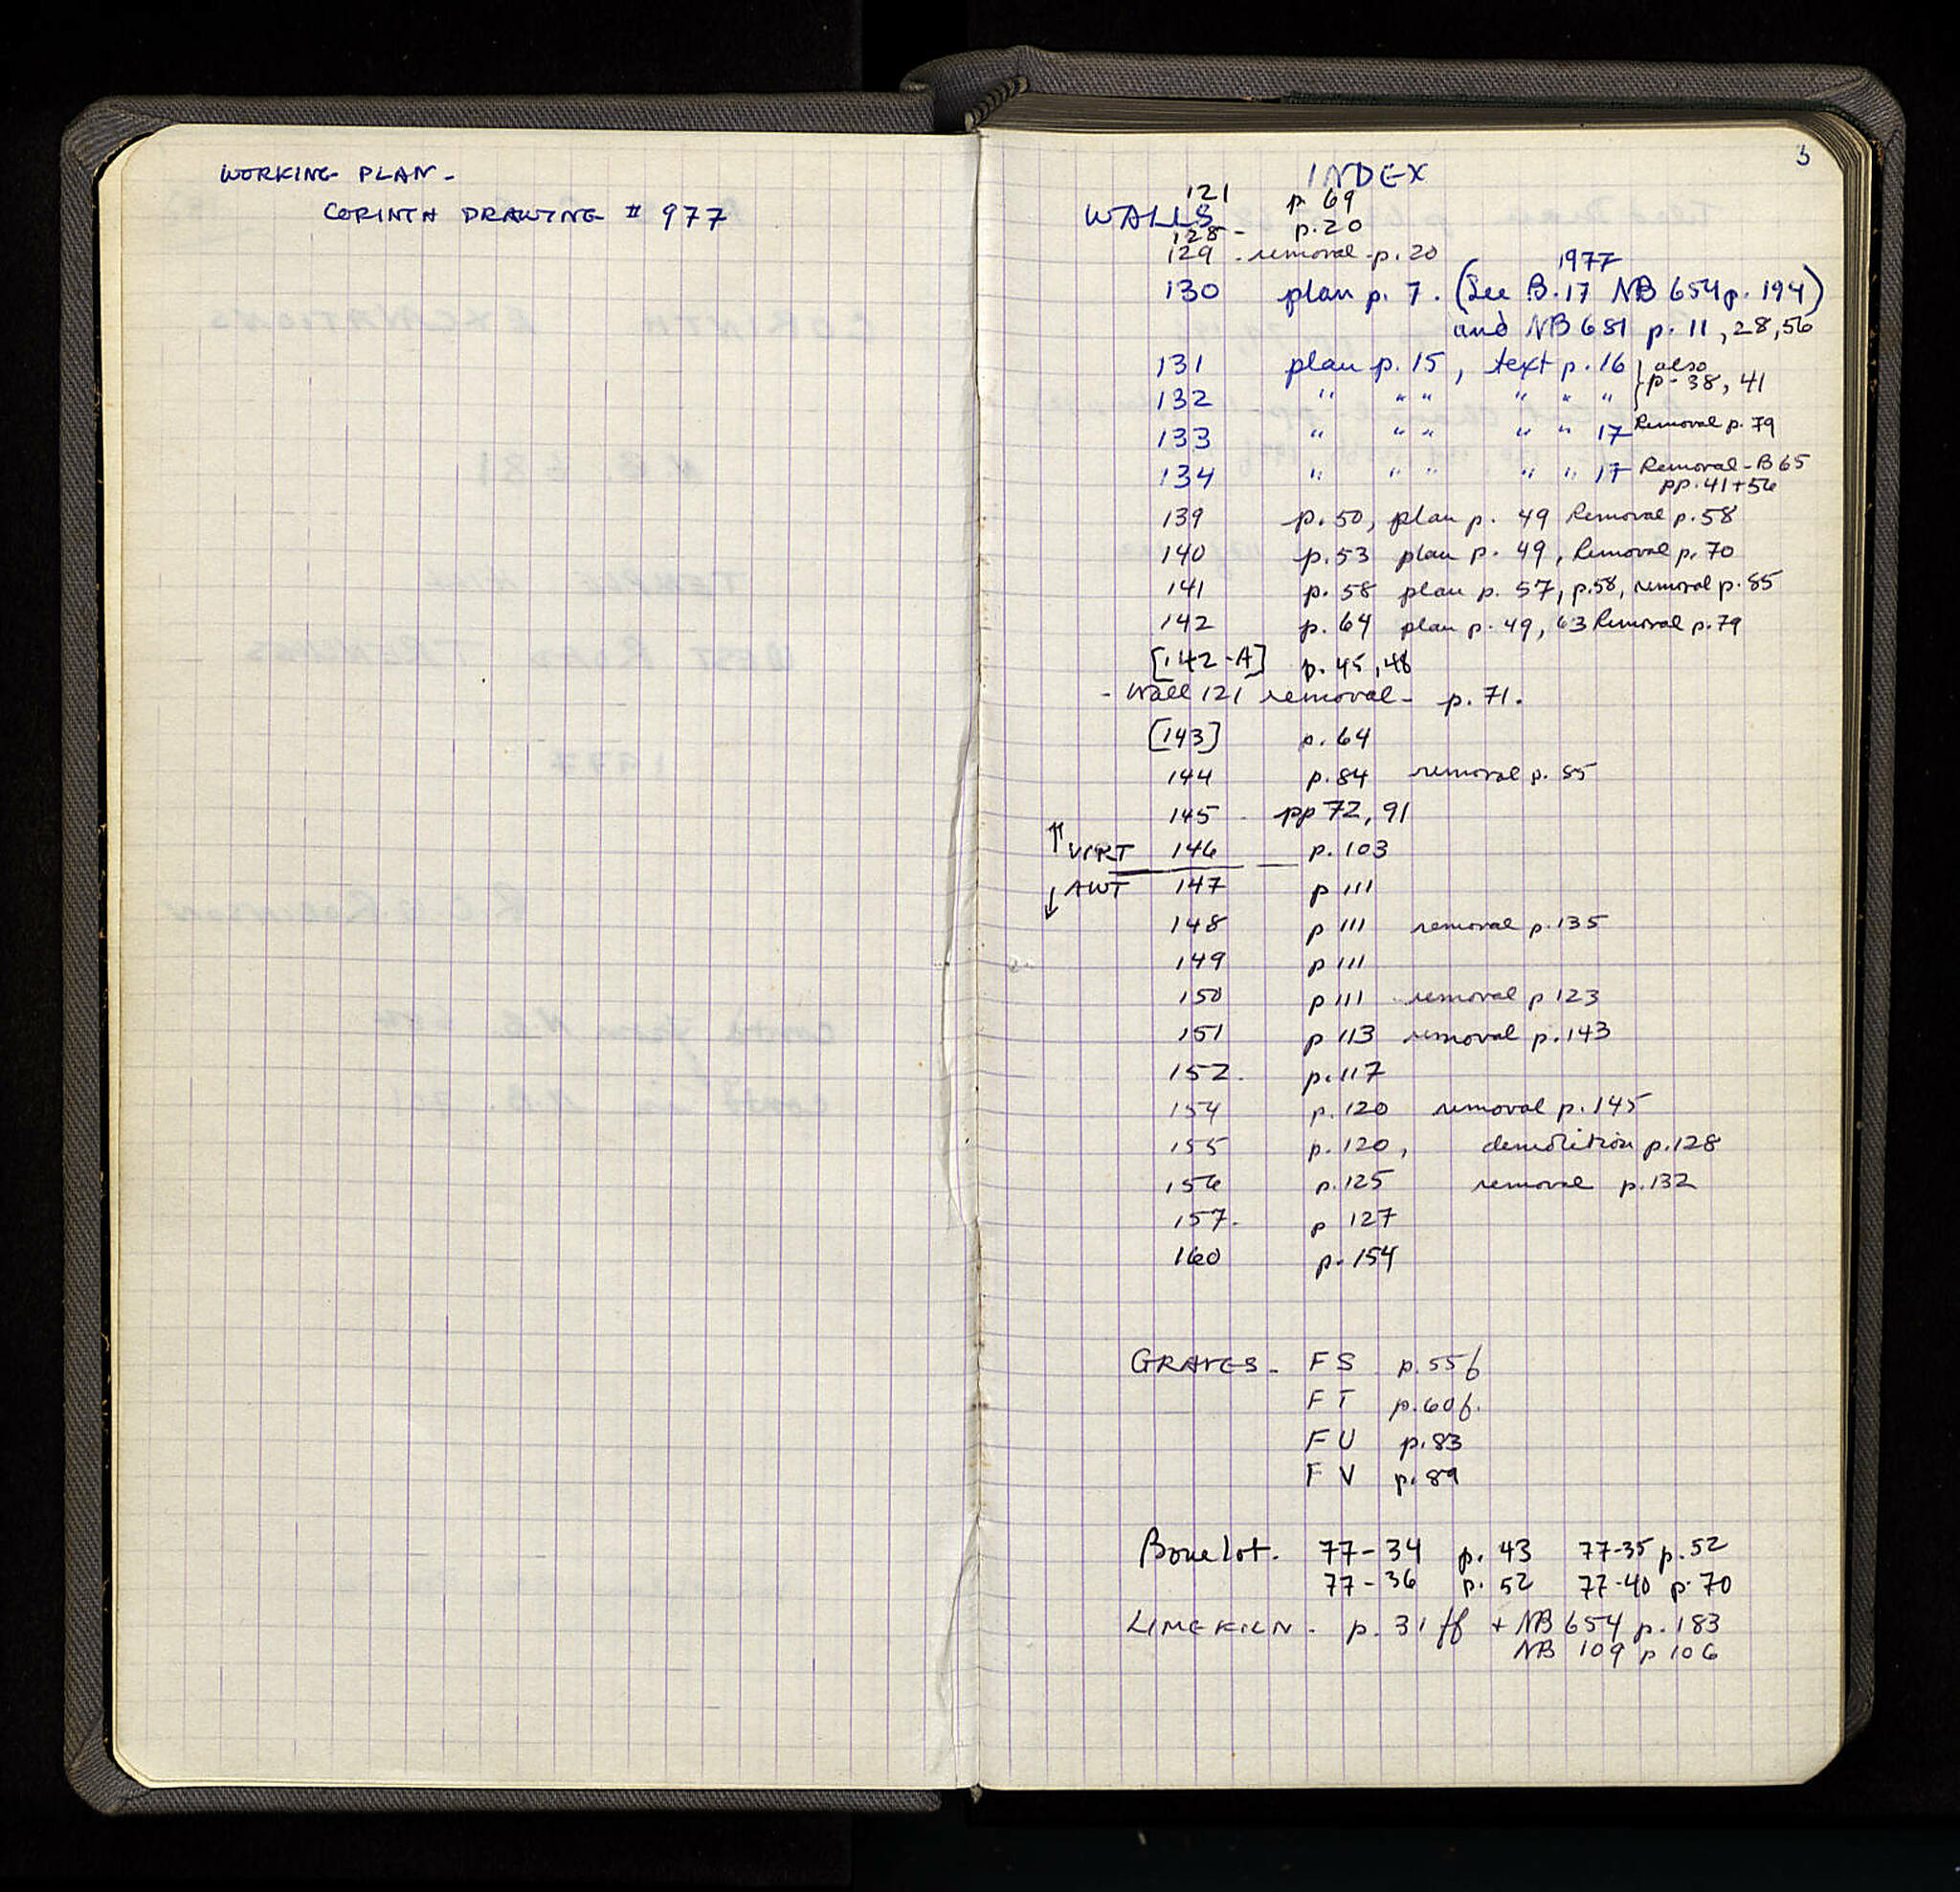 WORKING PLAN -
CORINTH DRAWING # 977
3
INDEX
121 p 69
WALLS
128 - p. 20
129 - removal - p. 20
1977
130 plan p. 7. (See B. 17 NB 654 p. 194)
and NB 681 p. 11, 28, 56
131 plan p. 15, text p. 16 } also
132 " " " " " " } p - 38, 41
133 " " " " " 17 Removal p. 79
134 " " " " " 17 Removal - B 65
pp. 41 + 56
139 p. 50, plan p. 49 Removal p. 58
140 p. 53 plan p. 49, Removal p. 70
141 p. 58 plan p. 57, p. 58, removal p. 85
142 p. 64 plan p. 49, 63 Removal p. 79
[142-A] p. 45, 48
- Wall 121 removal - p. 71.
[143] p. 64
144 p. 84 removal p. 85
145 - pp 72, 91
↑ 146 p. 103
↓ AWT 147 p 111
148 p 111 removal p. 135
149 p 111
150 p 111 - removal p 123
151 p 113 removal p. 143
152. p. 117
154 p. 120 removal p. 145
155 p. 120, demolition p. 128
156 p. 125 removal p. 132
157. p 127
160 p. 154
GRAVES - FS p. 55 f
FT p. 60 f.
FU p. 83
FV p. 89
Bone lot. 77-34 p. 43 77-35 p. 52
77-36 p. 52 77-40 p. 70
LIMEKILN - p. 31 ff + NB 654 p. 183
NB 109 p 106